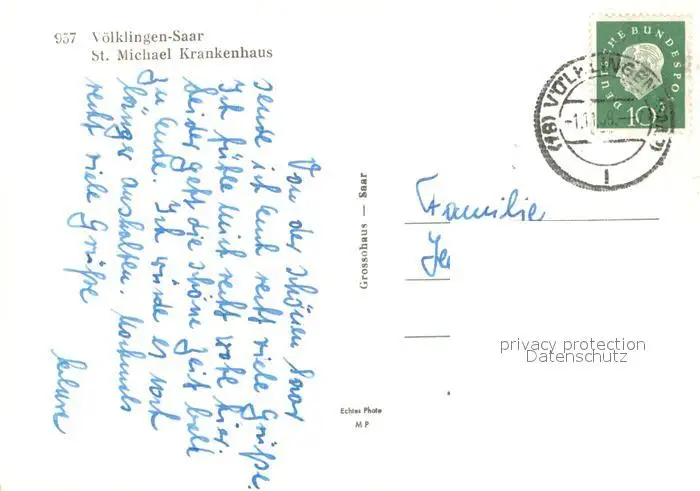 957 Völklingen-Saar
St. Michael Krankenhaus
Von der schönen Saar
sende ich Euch recht viele Grüße.
Ich fühle mich recht wohl hier
leider geht die schöne Zeit bald
zu Ende. Ich würde es noch
länger aushalten. Nochmals
recht viele Grüße
Grossohaus — Saar
Echtes Photo
M P
DEUTSCHE BUNDESPOST
10
(18) VÖLKLINGEN
-1.11.
1
Familie
Je
privacy protection
Datenschutz